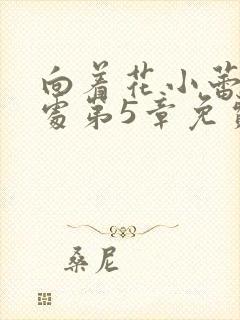 向着花小蕾
处第5章免
桑尼